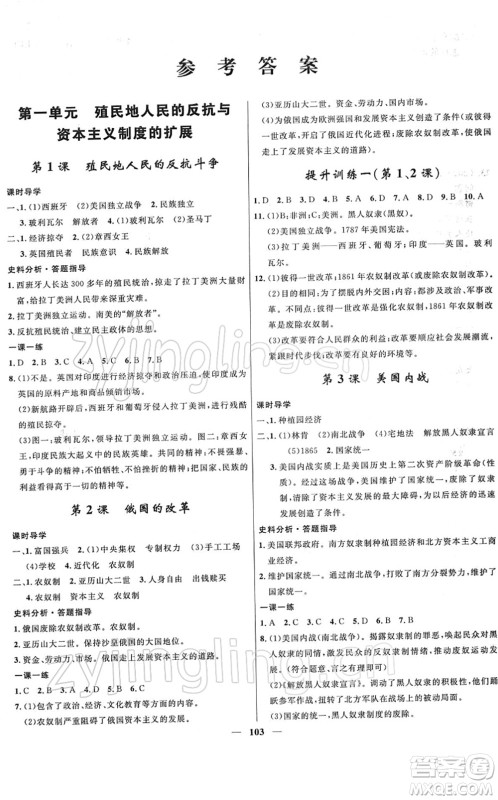 参考答案
第一单元 殖民地人民的反抗与
资本主义制度的扩展
第1课 殖民地人民的反抗斗争
课时导学
一、1.(1)西班牙 (2)美国独立战争 2.民族独立
3.玻利瓦尔 解放者 4.(1)华盛顿 (2)圣马丁
二、1.经济掠夺 2.(2)章西女王
3.英国殖民者 民族意识 民族解放
史料分析·答题指导
1.西班牙人长达300多年的殖民统治,掠走了拉丁美洲大量的
财富。
2.拉丁美洲独立运动。南美的“解放者”。
3.反抗殖民统治,建立资本主义性质的国家。
一课一练
1.D 2.B 3.C 4.A 5.C 6.B 7.B
8.(1)不是。英国对印度进行经济掠夺和商品倾销,印度成为
英国的原料产地和商品倾销市场。
(2)新航路开辟后,西班牙和葡萄牙入侵拉丁美洲并建立了
殖民统治。
(3)图一:领导了拉丁美洲独立运动,为拉丁美洲的独立和解
放作出了贡献。图二:印度的民族英雄。热爱祖国、英勇顽强、
勇于斗争的精神;不怕牺牲的精神;对理想的执着精神;坚持
到底的精神等。
第2课 俄国的改革
课时导学
一、1.富国强兵 2.(1)中央集权 专制权力 (3)手工工场
(4)学校 4.近代化 农奴制
二、1.农奴制 2.亚历山大二世 3.人身自由 出钱赎买
4.农奴制
史料分析·答题指导
1.俄国废除农奴制改革。
2.亚历山大二世。保持沙皇俄国的大国地位。
3.资金、劳动力。使俄国走上了发展资本主义的道路。
一课一练
1.C 2.D 3.C 4.D 5.A 6.B
7.(1)政治、经济、文化教育等方面的内容。
(2)农奴制严重阻碍了俄国资本主义的发展。
(3)亚历山大二世。资金、劳动力、国内市场。
(4)为俄国成为欧洲强国和资本主义的发展创造了条件;
开启了俄国近代化进程;废除农奴制改革,使俄国走上了发展
资本主义的道路。
提升训练一(第1、2课)
1.D 2.A 3.C 4.B 5.C 6.C 7.D 8.B 9.D 10.A
11.(1)B:非洲;C:美洲。黑人奴隶(黑奴)。
(2)美国独立战争。1787年宪法。
(3)拉丁美洲——西班牙、葡萄牙;印度——英国。拉丁美洲
独立运动。
12.(1)彼得一世改革;1861年农奴制改革(或废除农奴制改革)。
(2)为了摆脱内外困境。彼得一世改革强化农奴制;1861年
改革废除农奴制。
(3)改革要符合人民群众的利益;改革要顺应历史发展潮流,
紧跟时代步伐;改革要符合本国国情等。
第3课 美国内战
课时导学
一、1.种植园经济
二、1.(1)林肯 (2)南北战争 (4)宅地法 解放黑人奴隶宣言
(5)1865 2.国家统一
3.美国内战实质上是美国历史上第二次资产阶级革命。经过
这场战争,美国维护了国家统一,废除了奴隶制,清除了资本
主义发展的最大障碍,为以后经济的迅速发展创造了条件。
史料分析·答题指导
1.美国联邦政府。南方奴隶制种植园经济和北方资本主义工商
业之间的矛盾。
2.维护国家统一。维护了国家统一,废除了奴隶制。
一课一练
1.D 2.C 3.D 4.B 5.A 6.D 7.B
8.(1)美国内战(南北战争)。揭露奴隶制的罪恶,激起人们对
黑人奴隶的同情和对奴隶制的憎恨,从而推动了废奴运动的
发展。(符合题意,言之有理即可)
(2)《解放黑人奴隶宣言》。调动了黑人奴隶的积极性,使北方
军队得到了雄厚的兵源,从此扭转了北方军队在战场上的
形势。
(3)国家的统一,美国南部黑人奴隶制度的废除。
103
zyjingling.com
作业精灵